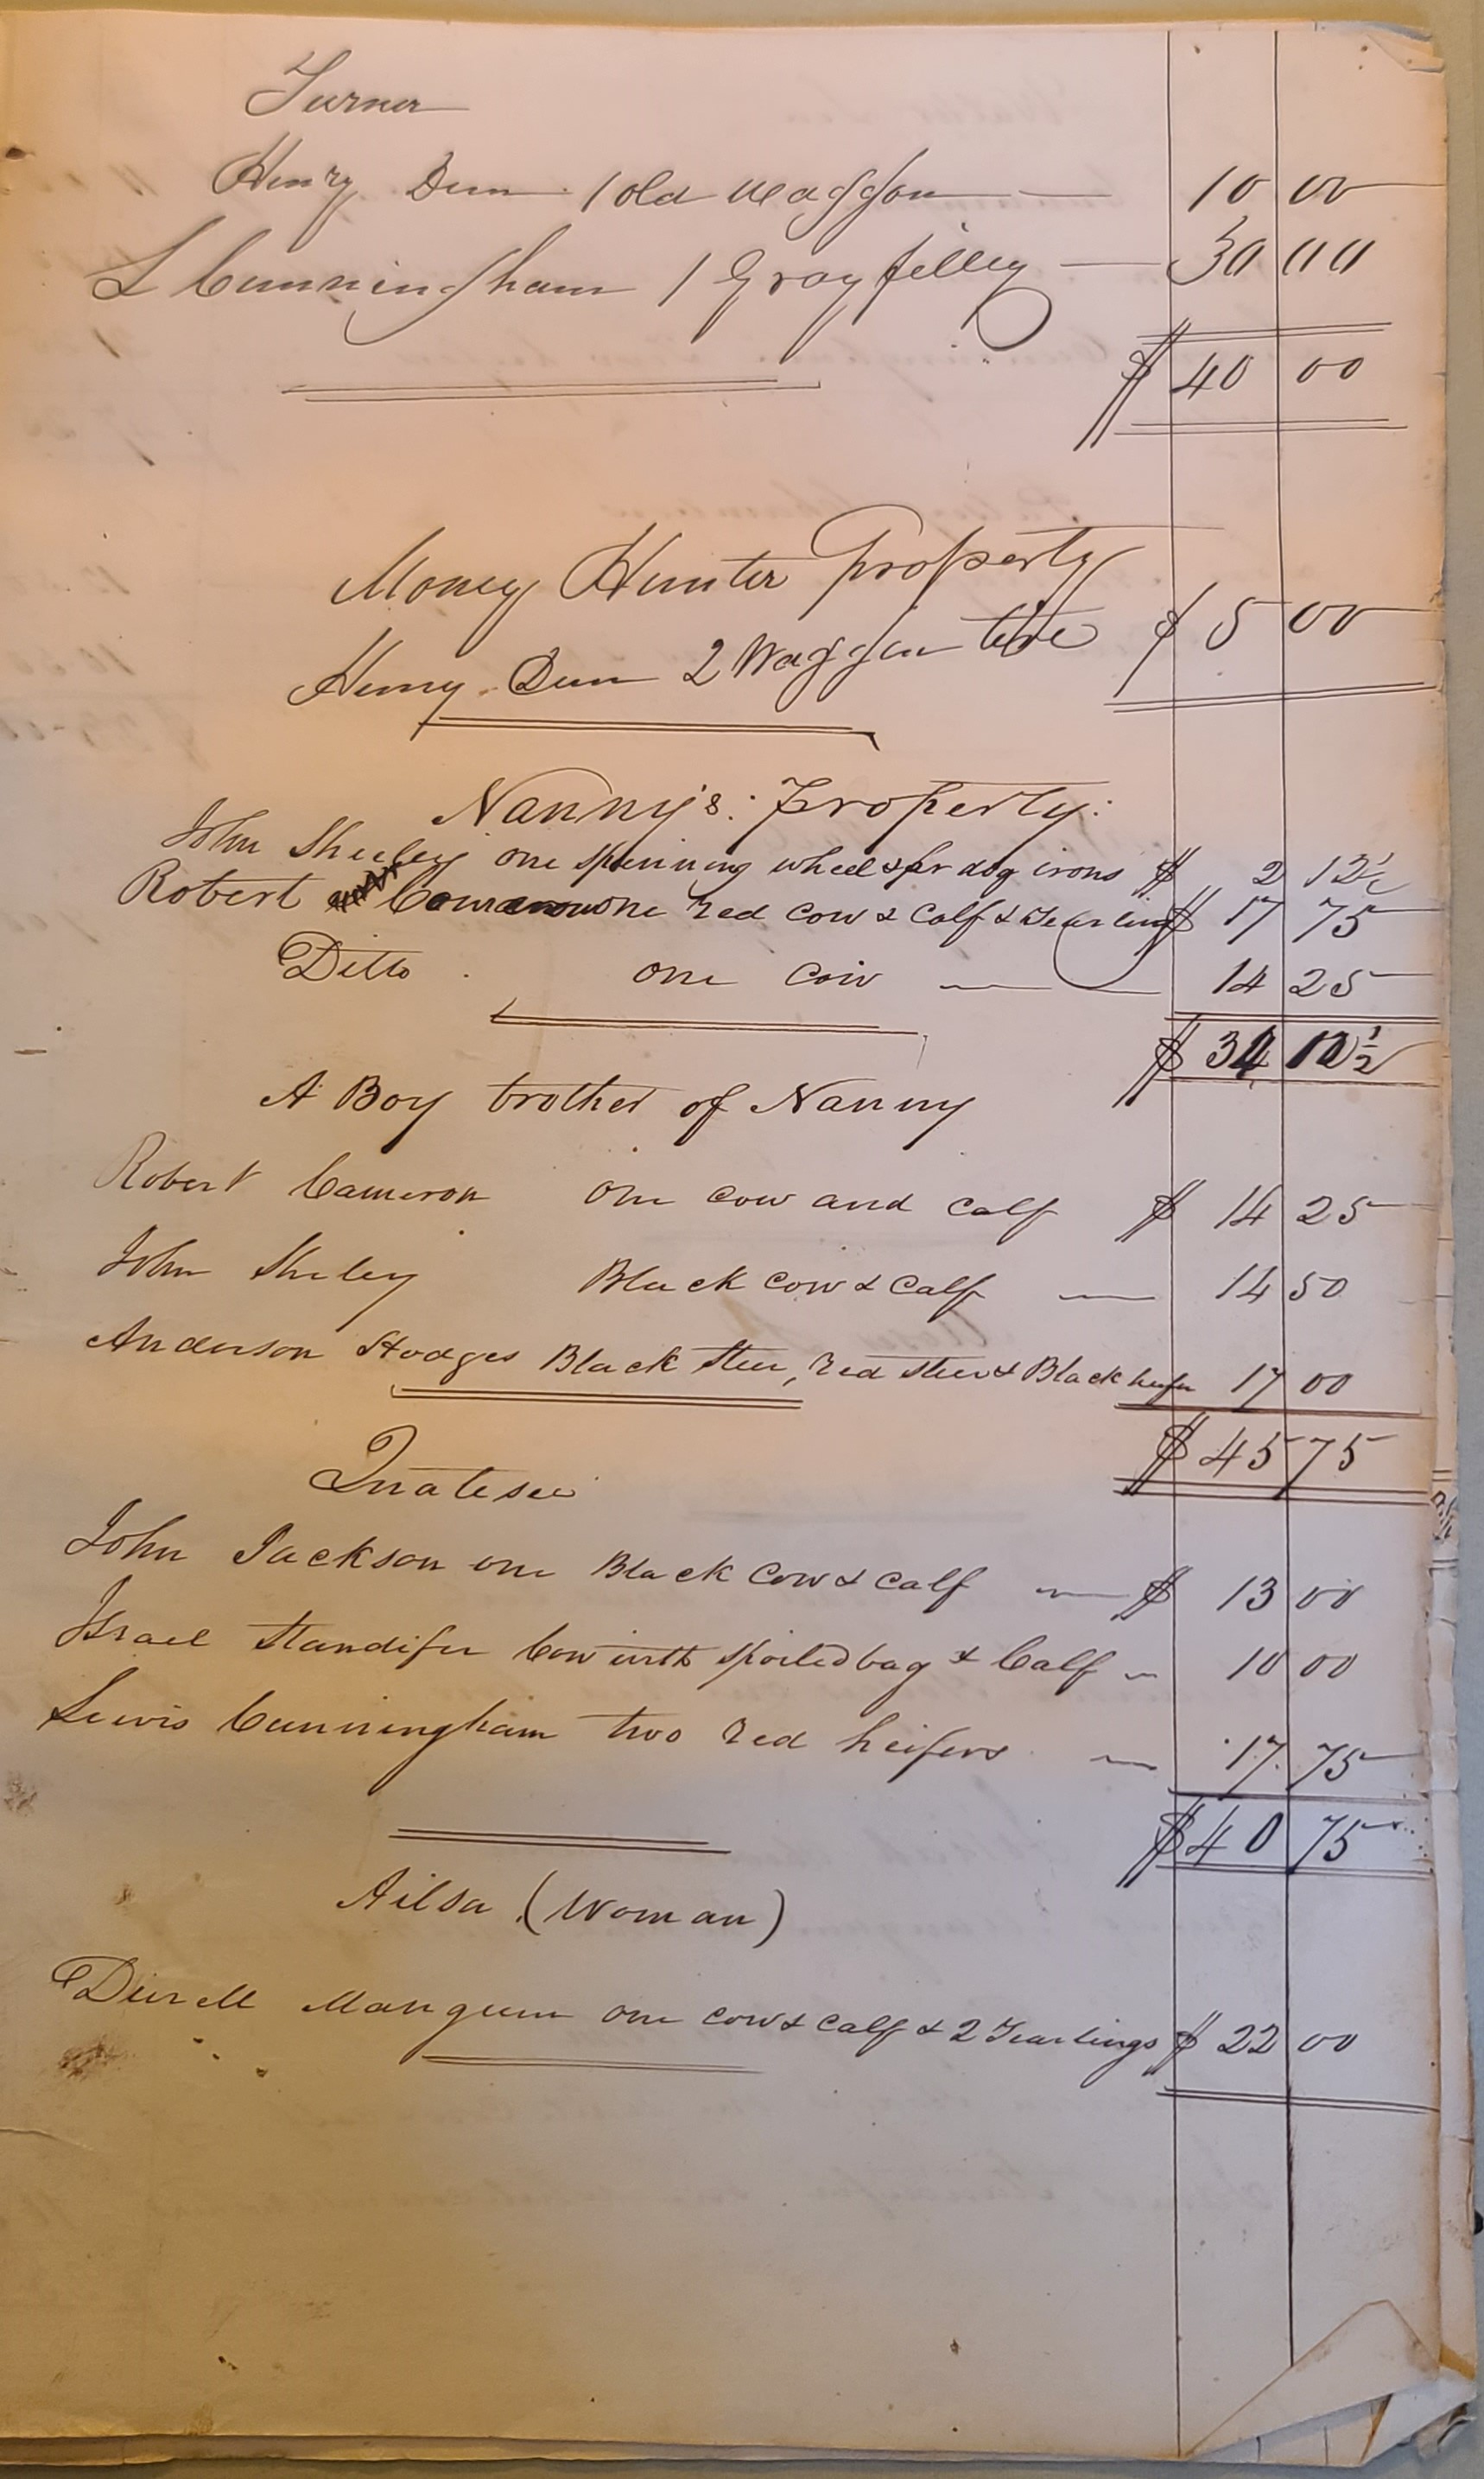 Turner
Henry Dun 1 old waggon — 10 00
L Cunningham 1 Gray filley — 30 00
$ 40 00
Money Hunter Property
Henry Dun 2 Waggon tire $ 5 00
Nanny's: Property:
John Sheley one spinning wheel & pr dog irons $ 2 12½
Robert Cameron one red cow & calf & Yearling $ 17 75
Ditto one cow — 14 25
$ 34 12½
A Boy brother of Nanny
Robert Cameron one cow and calf $ 14 25
John Sheley Black cow & calf — 14 50
Anderson Hodges Black steer, red steer & Black heifer 17 00
$ 45 75
John Jackson one Black cow & calf — $ 13 00
Israel Standifer Cow with spoiled bag & Calf — 10 00
Lewis Cunningham two red heifers — 17 75
$ 40 75
Ailsa (Woman)
Mangum one cow & calf & 2 Yearlings $ 22 00